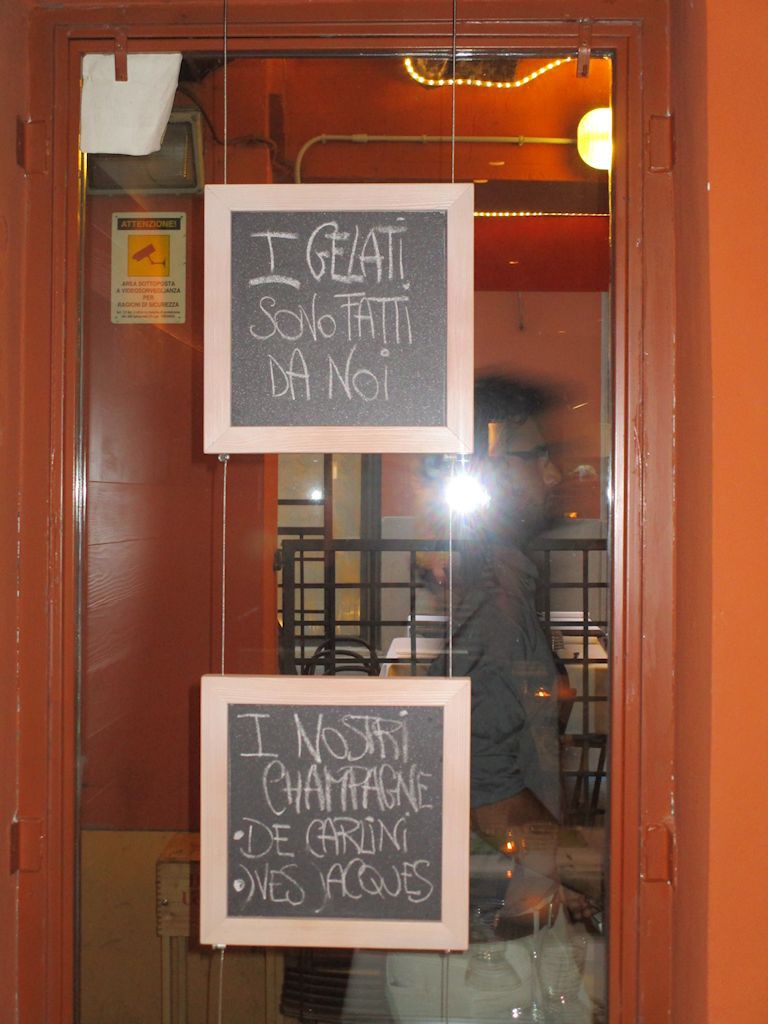 ATTENZIONE!
AREA SOTTOPOSTA
A VIDEOSORVEGLIANZA
PER
RAGIONI DI SICUREZZA
I GELATI
SONO FATTI
DA NOI
I NOSTRI
CHAMPAGNE
• DE CARLINI
• YVES JACQUES